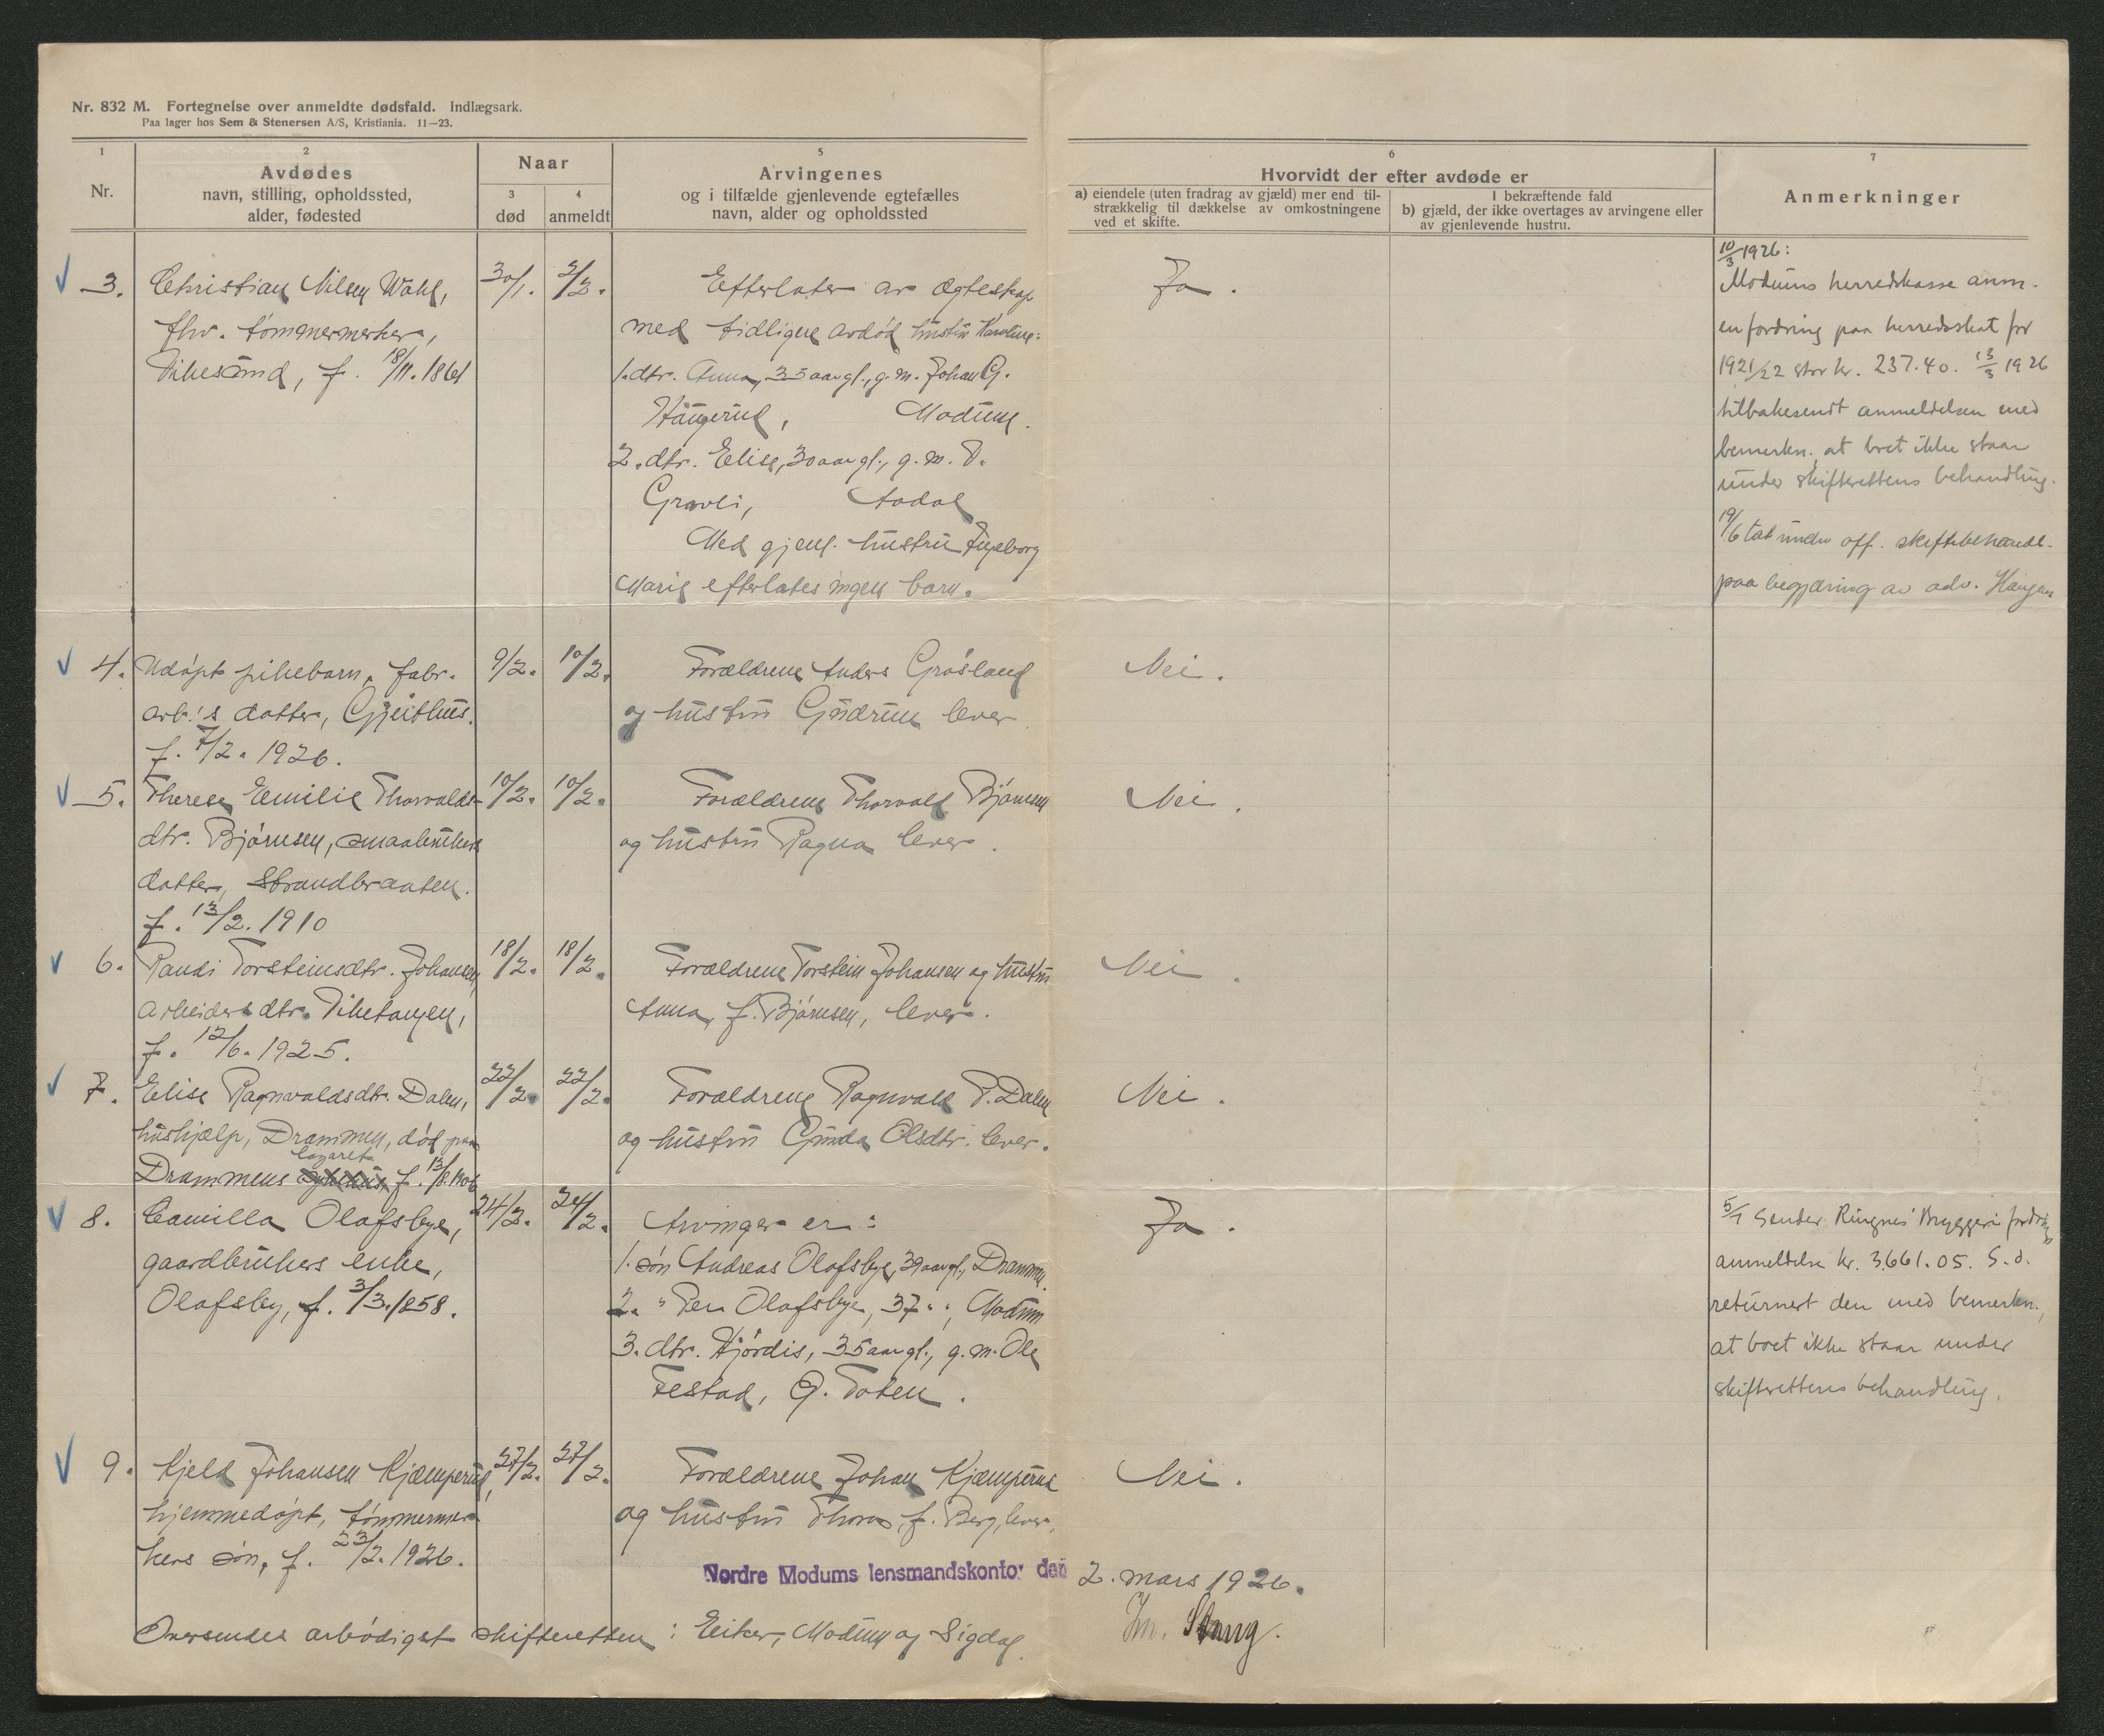 Nr. 832 M. Fortegnelse over anmeldte dødsfald. Indlægsark.
Paa lager hos Sem & Stenersen A/S, Kristiania. 11—23.
1
Nr.
2
Avdødes
navn, stilling, opholdssted,
alder, fødested
Naar
3
død
4
anmeldt
5
Arvingenes
og i tilfælde gjenlevende egtefælles
navn, alder og opholdssted
6
Hvorvidt der efter avdøde er
a) eiendele (uten fradrag av gjæld) mer end til-
strækkelig til dækkelse av omkostningene
ved et skifte.
I bekræftende fald
b) gjæld, der ikke overtages av arvingene eller
av gjenlevende hustru.
7
Anmerkninger
3.
Christian Nilsen Wåhl,
fhv. tømmermerker,
Vikesund, f. 18/11. 1861
30/1.
2/2.
Efterlater av ægteskap
med tidligere avdød hustru Karoline:
1. dtr. Anna, 35 aar gl., g. m. Johan G.
Haugerud, Modum.
2. dtr. Elise, 30 aar gl., g. m. O.
Gravli, Aadal
Med gjenl. hustru Ingeborg
Marie efterlates ingen barn.
Ja.
10/3 1926:
Modums herredskasse anm.
en fordring paa herredsskat for
1921/22 stor kr. 237.40. 13/3 1926
tilbakesendt anmeldelsen med
bemerkn. at boet ikke staar
under skifterettens behandling.
19/6 tat under off. skiftebehandl.
paa begjæring av adv. Haugen
4.
Udøpt pikebarn, fabr.
arb.'s datter, Gjeithus.
f. 7/2. 1926.
9/2.
10/2.
Forældrene Anders Grøsland
og hustru Gudrun lever
Nei.
5.
Therese Emilie Thorvalds-
dtr. Bjørnsen, smaabrukers
datter, Strandbraaten.
f. 13/2. 1910
10/2.
10/2.
Forældrene Thorvald Bjørnsen
og hustru Ragna lever.
Nei.
6.
Randi Torsteinsdtr. Johansen,
arbeiders dtr. Viketangen,
f. 12/6. 1925.
18/2.
18/2.
Forældrene Torstein Johansen og hustru
Anna, f. Bjørnsen, lever.
Nei.
7.
Elise Ragnvaldsdtr. Dalen,
hushjælp, Drammen, død paa
lazarett
Drammens sykehus, f. 13/8. 1906
22/2.
22/2.
Forældrene Ragnvald P. Dalen
og hustru Gunda Olsdtr. lever.
Nei.
8.
Camilla Olafsbye,
gaardbrukers enke,
Olafsby, f. 3/3. 1858.
24/2.
24/2.
Arvinger er:
1. søn Andreas Olafsbye, 39 aar gl., Drammen.
2. " Per Olafsbye, 37 " ", Modum
3. dtr. Hjørdis, 35 aar gl., g. m. Ole
Festad, Ø. Toten.
Ja.
5/7 sender Ringnes Bryggeri fordrings
anmeldelse kr. 3661.05. S. d.
returnert den med bemerkn.,
at boet ikke staar under
skifterettens behandling.
9.
Kjeld Johansen Kjæmperud,
hjemmedøpt, tømmermer-
kers søn, f. 23/2. 1926.
27/2.
27/2.
Forældrene Johan Kjæmperud
og hustru Thora, f. Berg, lever.
Nei.
Nordre Modums lensmandskontor den 2. mars 1926.
Oversendes ærbødigst skifteretten: Eiker, Modum og Sigdal.